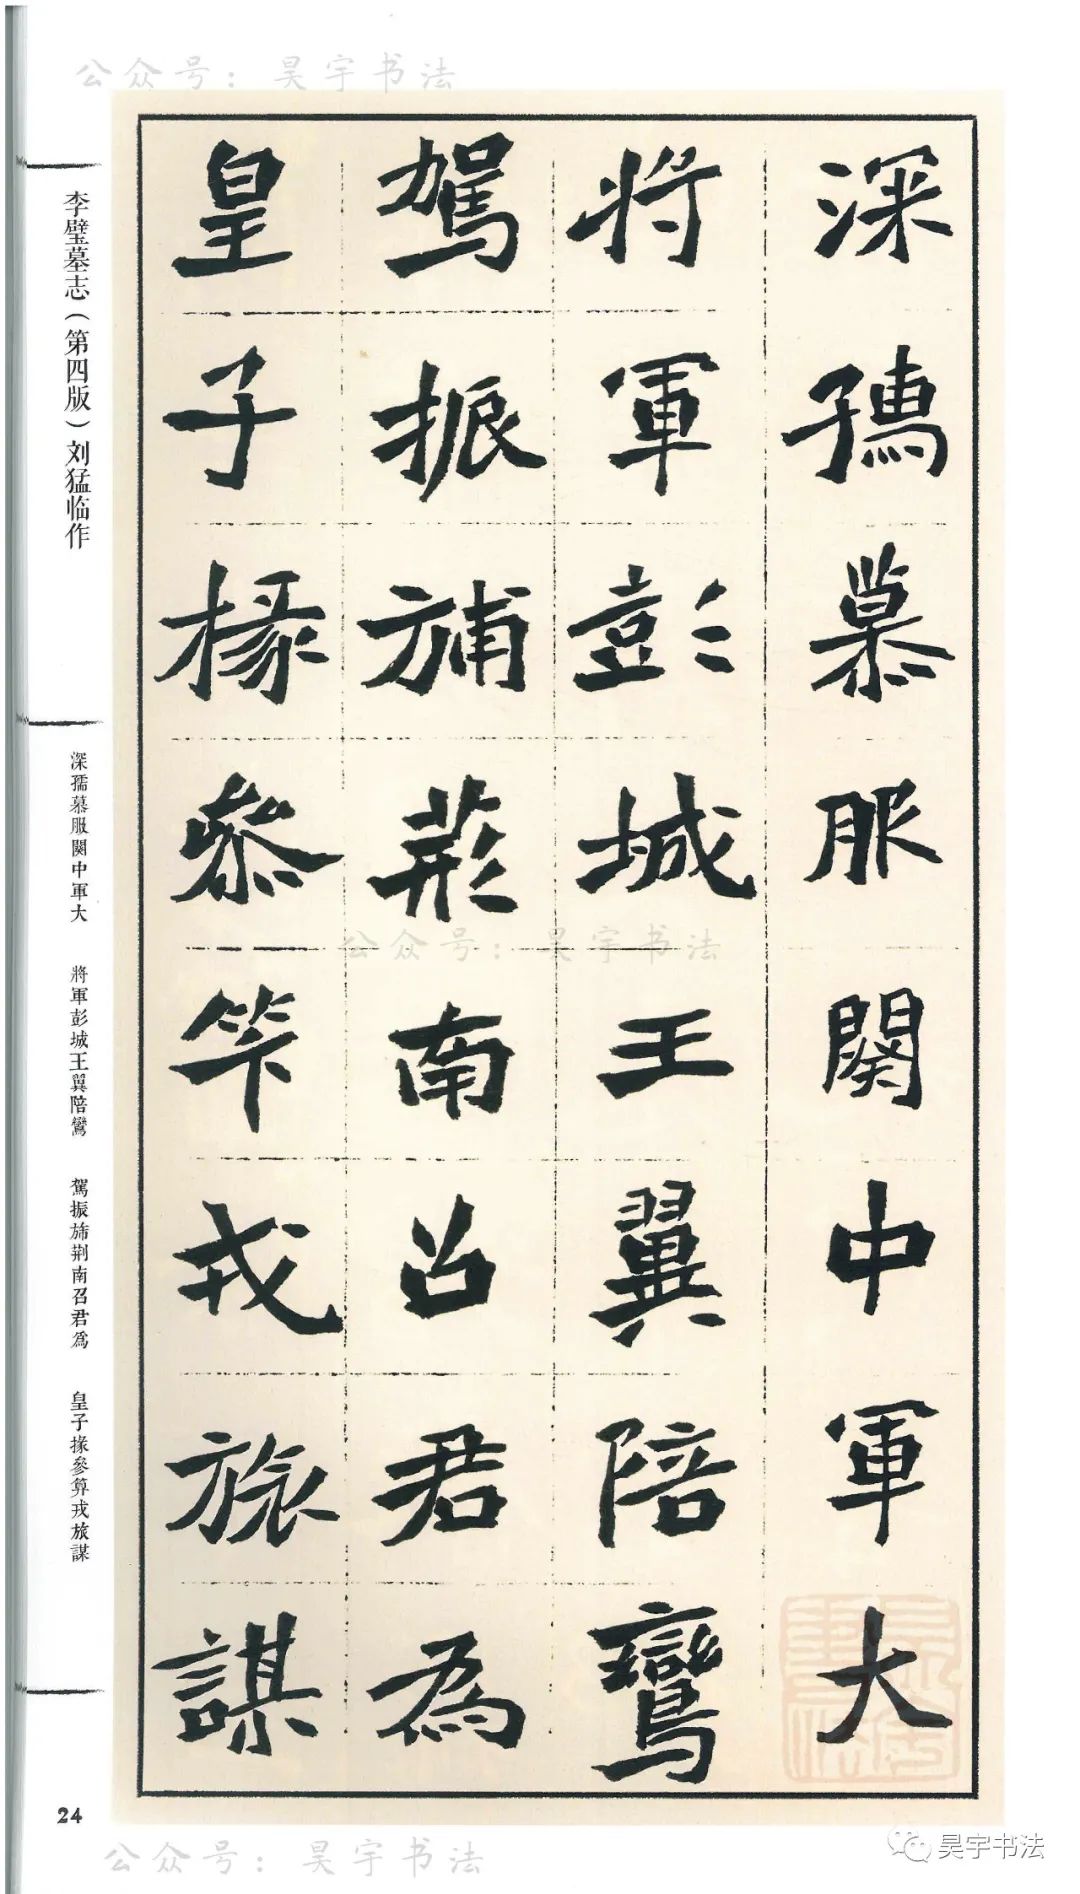 公众号：昊宇书法
深孺慕服闋中軍大
將軍彭城王翼陪鸞
駕振斾荆南召君為
皇子掾參竿戎旅謀
李璧墓志（第四版）刘猛临作
深孺慕服闋中軍大
將軍彭城王翼陪鸞
駕振斾荆南召君爲
皇子掾參算戎旅謀
公众号：昊宇书法
24
公众号：昊宇书法
昊宇书法